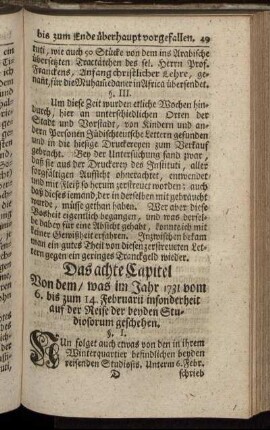 bis zum Ende überhaupt vorgefallen. 49
tuti, wie auch 50 Stücke von dem ins Arabische
übersetzten Tractätchen des sel. Herrn Prof.
Franckens, Anfang christlicher Lehre, ge-
nañt, für die Muhamedaner in Africa übersendet.
§. III.
Um diese Zeit wurden etliche Wochen hin-
durch, hier an unterschiedlichen Orten der
Stadt und Vorstadt, von Kindern und an-
dern Personen Jüdischteutsche Lettern gefunden
und in die hiesige Druckereyen zum Verkauf
gebracht. Bey der Untersuchung fand sich zwar,
daß sie aus der Druckerey des Instituti, aller
sorgfältigen Aufsicht ohnerachtet, entwendet
und mit Fleiß so herum zerstreuet worden; auch
daß dieses jemand, der in derselben mit gebraucht
wurde, müsse gethan haben. Wer aber diese
Bosheit eigentlich begangen, und was dersel-
be dabey für eine Absicht gehabt, konte ich mit
keiner Gewißheit erfahren. Inzwischen bekam
man ein gutes Theil von diesen zerstreueten Let-
tern gegen ein geringes Tranckgeld wieder.
Das achte Capitel
Von dem/ was im Jahr 1731 vom
6. bis zum 14. Februarii insonderheit
auf der Reise der beyden Stu-
diosorum geschehen.
§. I.
NUn folget auch etwas von den in ihrem
Winterquartier befindlichen beyden
reisenden Studiosis. Unterm 6. Febr.
D schrieb